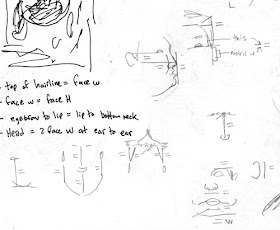 L
- this
- nostril w
- top of hairline = face w
- face w = face H
- eyebrow to lip = lip to bottom neck
- Head = 2 face w at ear to ear
= w